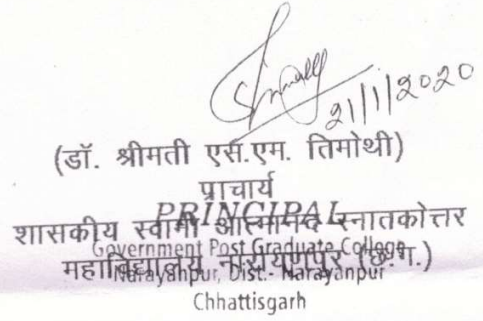 21/1/2020
(डॉ. श्रीमती एस.एम. तिमोथी)
प्राचार्य
PRINCIPAL
शासकीय स्वामी आत्मानंद स्नातकोत्तर
Government Post Graduate College
महाविद्यालय नारायणपुर (छ.ग.)
Narayanpur, Dist.- Narayanpur
Chhattisgarh